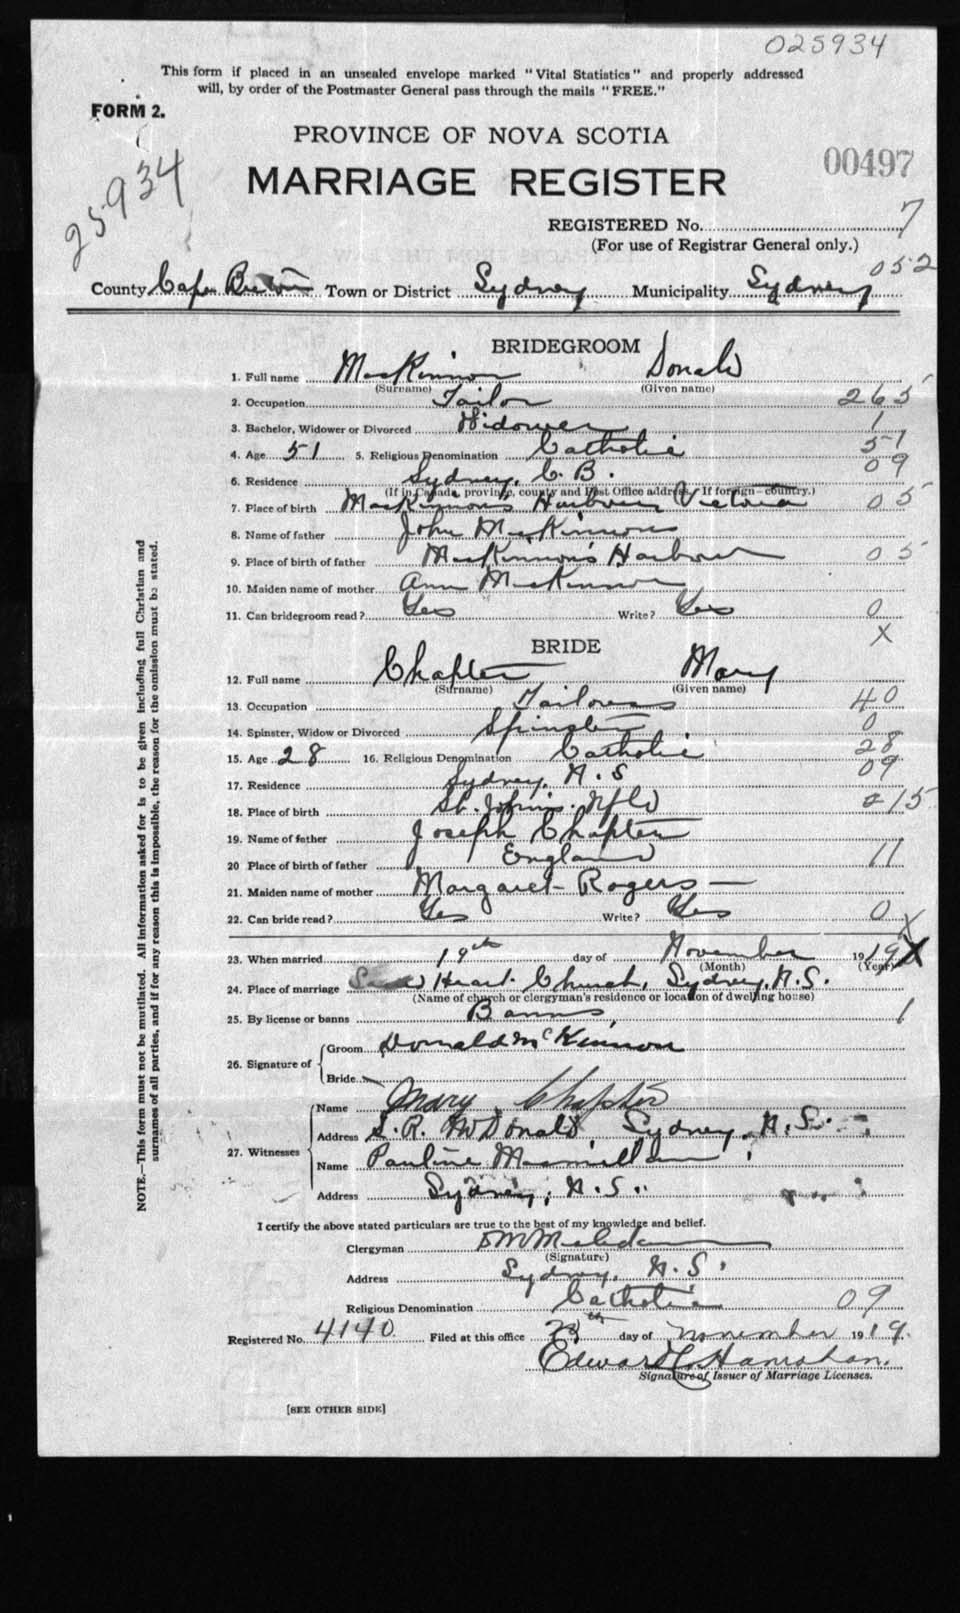 025934
This form if placed in an unsealed envelope marked "Vital Statistics" and properly addressed
will, by order of the Postmaster General pass through the mails "FREE."
FORM 2.
25934
PROVINCE OF NOVA SCOTIA
00497
MARRIAGE REGISTER
REGISTERED No. 7
(For use of Registrar General only.)
052
County Cape Breton Town or District Sydney Municipality Sydney
BRIDEGROOM
1. Full name MacKinnon Donald
(Surname) (Given name)
2. Occupation Tailor 265
3. Bachelor, Widower or Divorced Widower 1
4. Age 51 5. Religious Denomination Catholic 51
6. Residence Sydney, C. B. 09
(If in Canada, province, county and Post Office address. If foreign—country.)
7. Place of birth MacKinnon's Harbour, Victoria 05
8. Name of father John MacKinnon
9. Place of birth of father MacKinnon's Harbour 05
10. Maiden name of mother Ann MacKinnon
11. Can bridegroom read? Yes Write? Yes 0
X
BRIDE
12. Full name Chapter Mary
(Surname) (Given name)
13. Occupation Tailoress 40
14. Spinster, Widow or Divorced Spinster 0
15. Age 28 16. Religious Denomination Catholic 28
17. Residence Sydney, N. S 09
18. Place of birth St. John's. Nfld 15
19. Name of father Joseph Chapter
20 Place of birth of father England 11
21. Maiden name of mother Margaret Rogers
22. Can bride read? Yes Write? Yes 0
X
23. When married 19th day of November 1919
(Month) (Year)
24. Place of marriage Heart Church, Sydney, N.S.
(Name of church or clergyman's residence or location of dwelling house)
25. By license or banns Banns 1
26. Signature of Groom Donald McKinnon
Bride
Name Mary Chapter
27. Witnesses Address S. R. McDonald, Sydney, N.S.
Name Pauline Macmillan
Address Sydney, N. S.
I certify the above stated particulars are true to the best of my knowledge and belief.
Clergyman
(Signature)
Address Sydney, N. S.
Religious Denomination Catholic 09
Registered No. 4140 Filed at this office day of November 1919.
Edward C. Hanrahan.
Signature of Issuer of Marriage Licenses.
[SEE OTHER SIDE]
NOTE.—This form must not be mutilated. All information asked for is to be given including full Christian and
surnames of all parties, and if for any reason this is impossible, the reason for the omission must be stated.